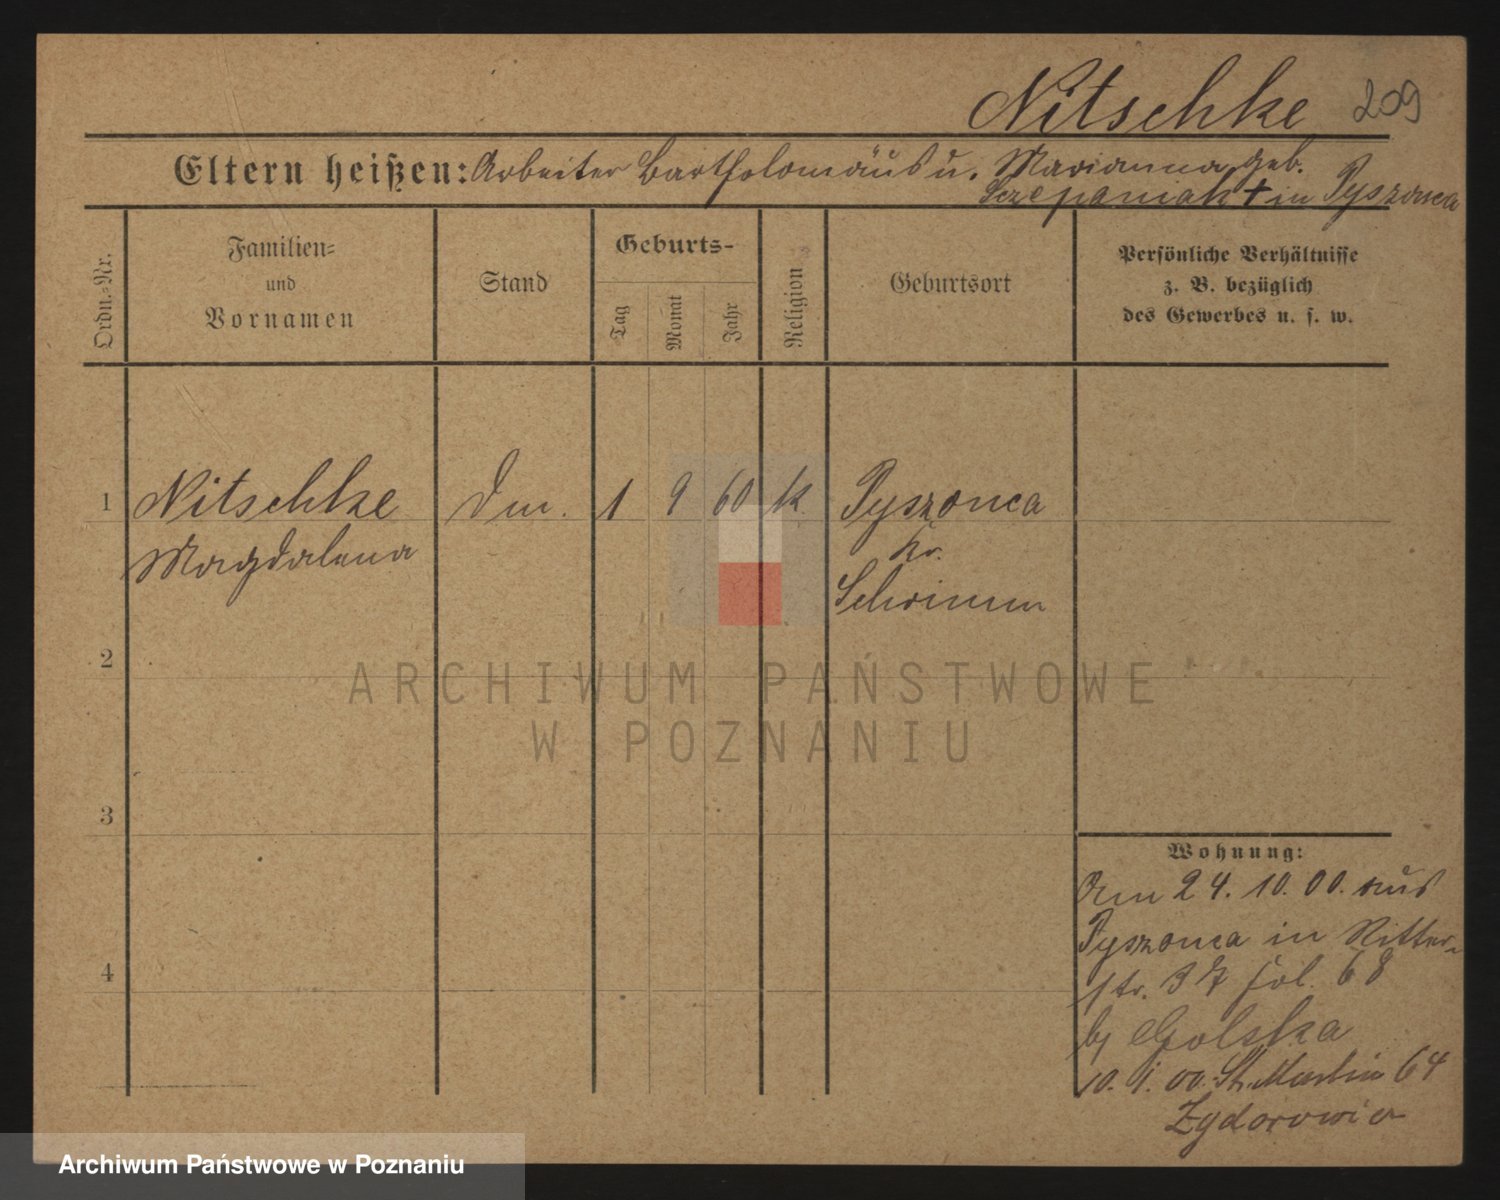 Nitschke 209
Eltern heißen: Arbeiter Bartholomäus u. Marianna geb.
Sczepaniak + in Pyszonca
Ordn.-Nr.
Familien-
und
Vornamen
Stand
Geburts-
Tag
Monat
Jahr
Religion
Geburtsort
Persönliche Verhältnisse
z. B. bezüglich
des Gewerbes u. s. w.
1 Nitschke Dm. 1 9 60 k. Pyszonca
Magdalena Kr.
Schrimm
2
ARCHIWUM PAŃSTWOWE
W POZNANIU
3
Wohnung:
Am 24. 10. 00. aus
Pyszonca in Ritter-
4
str. 37 fol. 68
bj Golska
10. 1. 00. St. Martin 64
Archiwum Państwowe w Poznaniu